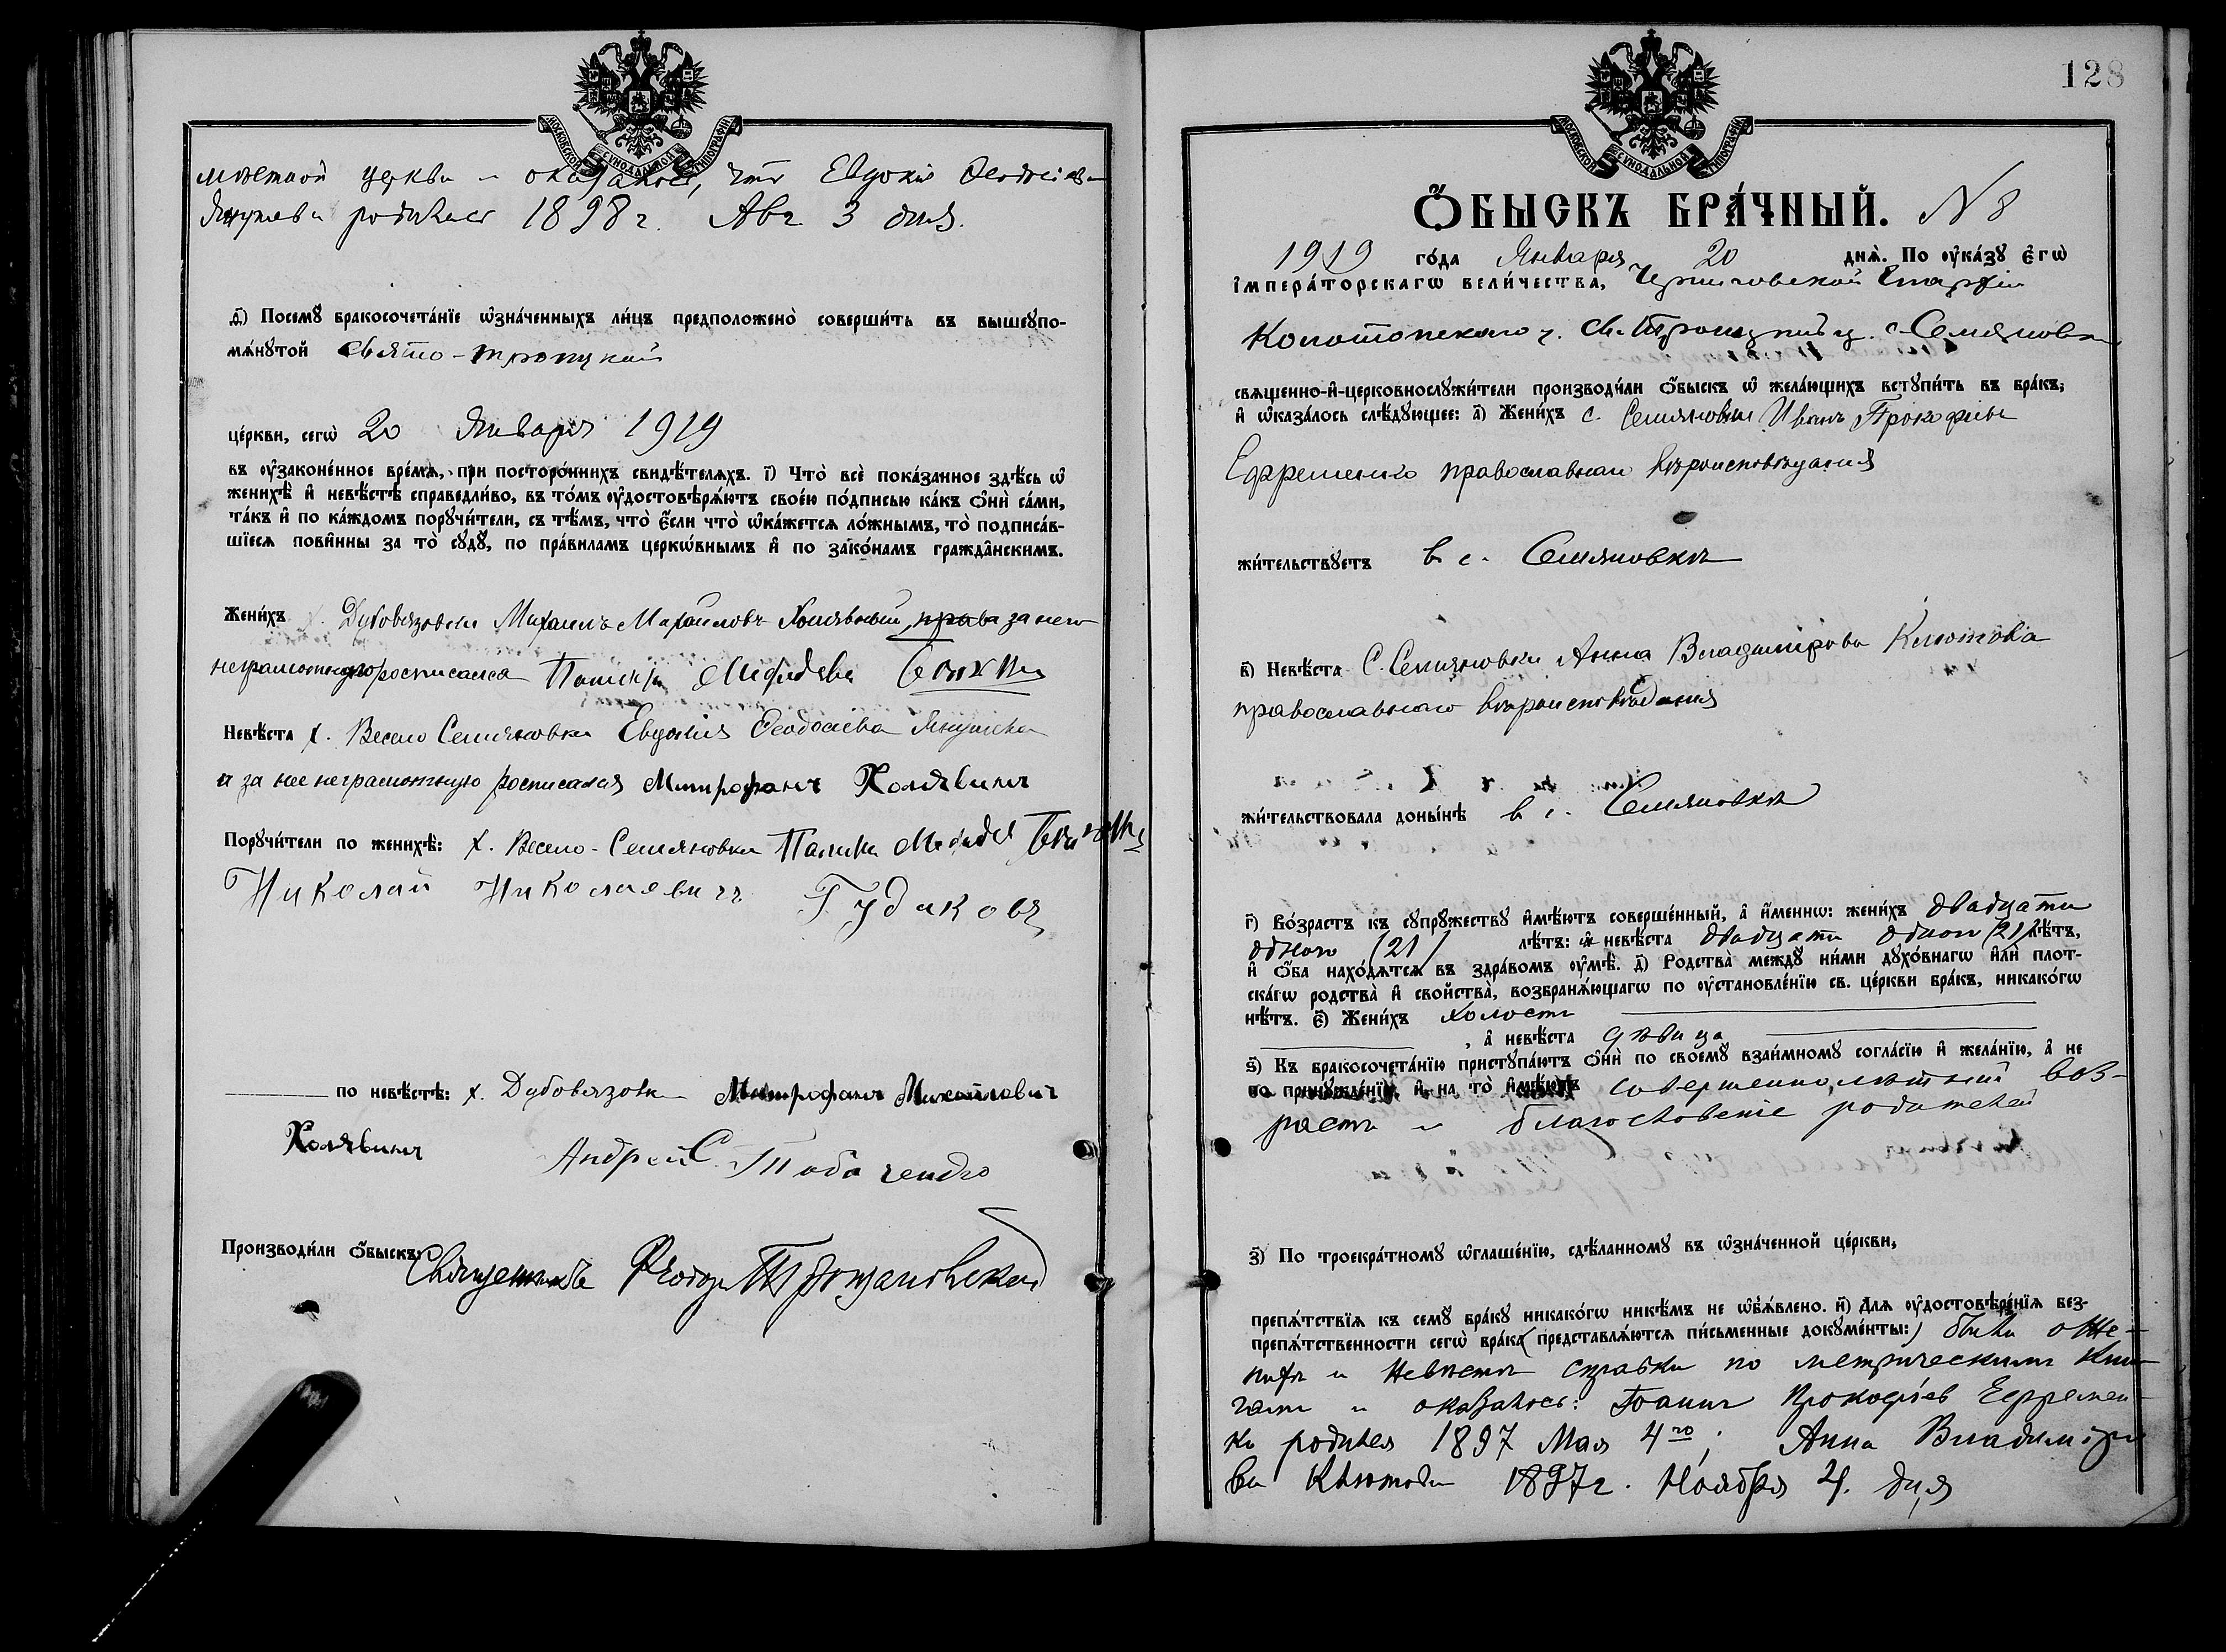 МОСКОВСКОЙ СѴНОДАЛЬНОЙ ТИПОГРАФІИ
местной церкви и оказалось, что Евдокія Ѳеодосіева
родилась 1898 г. Авг. 3 дня.
ѳ҃) Посемꙋ бракосочета́нїе ѡ҆зна́ченныхъ ли́цъ предположено̀ соверши́ть въ вышеꙋпо-
мѧ́нꙋтой Свято-Троицкой
це́ркви, сегѡ̀ 20 Января 1919
въ ᲂу҆законе́нное вре́мѧ, при посторо́ннихъ свидѣ́телѧхъ. і҃) Что̀ всѐ пока́занное здѣ́сь ѡ҆
женихѣ̀ и҆ невѣ́стѣ справедли́во, въ то́мъ ᲂу҆достовѣрѧ́ютъ свое́ю по́дписью ка́къ ѻ҆нѝ са́ми,
та́къ и҆ по ка́ждомъ порꙋчи́тели, съ тѣ́мъ, что̀ є҆́сли что̀ ѡ҆ка́жетсѧ ло́жнымъ, то̀ подписа́в-
шїесѧ пови́нны за то̀ сꙋдꙋ̀, по пра́виламъ церкѡ́внымъ и҆ по зако́намъ гражда̑нскимъ.
Жени́хъ х. Дубовязовки Михаилъ Михаиловъ Холявкинъ, права за него
неграмотнаго росписался
Невѣ́ста х. Весело Семяновки Евдокія Ѳеодосіева
и за нее неграмотную росписался Митрофанъ Холявкинъ
Порꙋчи́тели по женихѣ̀: х. Весело-Семяновки
Николай Николаевичъ Гудаковъ
по невѣ́стѣ: х. Дубовязовки Митрофанъ Михайловичъ
Холявкинъ Андрей С.
Производи́ли ѻ҆́быскъ: Священникъ Ѳеодоръ
128
МОСКОВСКОЙ СѴНОДАЛЬНОЙ ТИПОГРАФІИ
Ѻ҆́БЫСКЪ БРА́ЧНЫЙ. N 8
1919 го́да Января 20 днѧ̀. По ᲂу҆ка́зꙋ є҆гѡ̀
і҆мпера́торскагѡ вели́чества, Черниговской Епархіи
Конотопскаго у. Св. Троицкой ц. с. Семяновки
свѧще́нно-и҆-церковнослꙋжи́тели производи́ли ѻ҆́быскъ ѡ҆ жела́ющихъ встꙋпи́ть въ бра́къ,
и҆ ѡ҆каза́лось слѣ́дꙋющее: а҃) Жени́хъ с. Семяновки Иванъ Прокофіевъ
Ефременко православнаго вѣроисповѣданія
жи́тельствꙋетъ в с. Семяновкѣ
в҃) Невѣ́ста С. Семяновки Анна Владимірова Клютова
православнаго вѣроисповѣданія
жи́тельствовала доны́нѣ в с. Семяновкѣ
г҃) Во́зрастъ къ сꙋпрꙋ́жествꙋ и҆мѣ́ютъ соверше́нный, а҆ и҆́меннѡ: жени́хъ двадцати
одного (21) лѣ́тъ: а҆ невѣ́ста двадцати одного (21) лѣ́тъ,
и҆ ѻ҆́ба нахо́дѧтсѧ въ здра́вомъ ᲂу҆мѣ̀. д҃) Родства̀ междꙋ̀ ни́ми дꙋхо́внагѡ и҆лѝ плот-
ска́гѡ родства̀ и҆ свойства̀, возбранѧ́ющагѡ по ᲂу҆становле́нїю св. це́ркви бра́къ, никако́гѡ
нѣ́тъ. є҃) Жени́хъ холостъ
, а҆ невѣ́ста дѣвица
ѕ҃) Къ бракосочета́нїю пристꙋпа́ютъ ѻ҆нѝ по своемꙋ̀ взаи́мномꙋ согла́сїю и҆ жела́нїю, а҆ не
по принꙋжде́нїю, и҆ на то̀ и҆мѣ́ютъ совершеннолѣтній воз-
растъ и благословеніе родителей
з҃) По троекра́тномꙋ ѡ҆глаше́нїю, сдѣ́ланномꙋ въ ѡ҆зна́ченной це́ркви,
препѧ́тствїѧ къ семꙋ̀ бра́кꙋ никако́гѡ никѣ́мъ не ѡ҆б̾ѧ́влено. и҃) Длѧ ᲂу҆достовѣре́нїѧ без-
препѧ́тственности сегѡ̀ бра́ка (представлѧ́ютсѧ пи́сьменные докꙋме́нты:) были о же-
нихѣ и невѣстѣ справки по метрическимъ кни-
гамъ и оказалось: Іоаннъ Прокофіев Ефремен-
ко родился 1897 Мая 4го; Анна Владиміро-
ва Клютова 1897 г. Ноября 4. дня